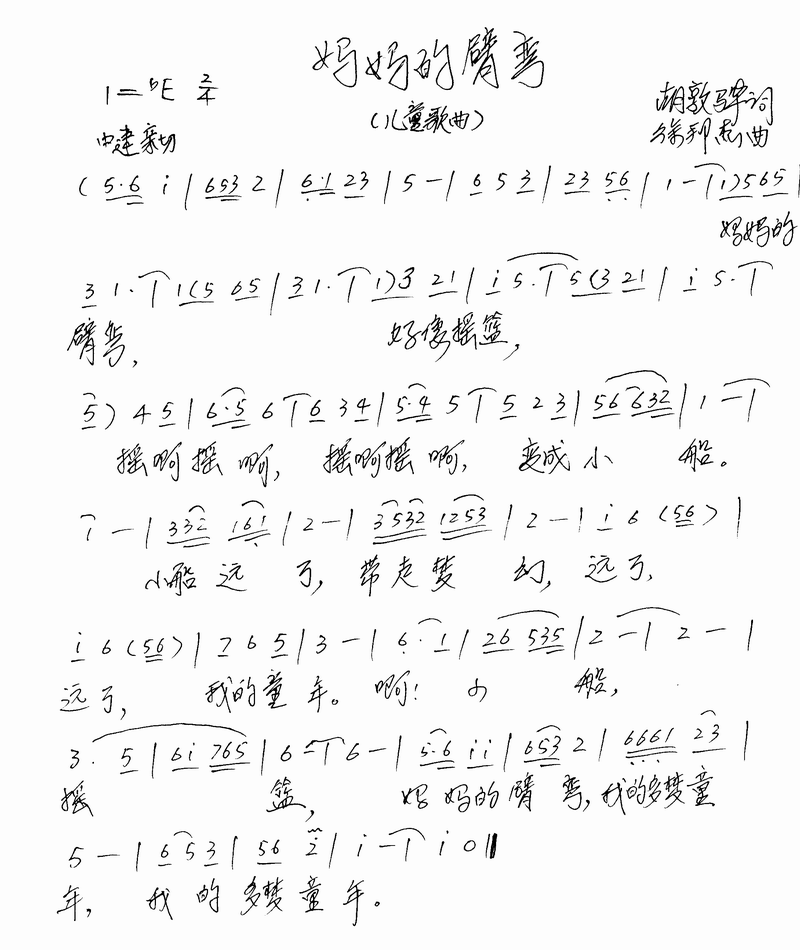 妈妈的臂弯
1=♭E 2/4
(儿童歌曲)
中速 亲切
词
曲
( 5·6 i | 653 2 | 6·1 23 | 5 - | 6 5 3 | 23 56 | 1 - | 1) 565 |
妈妈的
3 1· | 1(5 65 | 3 1· | 1) 3 21 | i 5· | 5(3 21 | i 5· |
臂弯, 好像摇篮,
5) 4 5 | 6·5 6 | 6 3 4 | 5·4 5 | 5 2 3 | 56 632 | 1 - |
摇啊摇啊, 摇啊摇啊, 变成小 船。
1 - | 332 161 | 2 - | 3532 1253 | 2 - | i 6 (56) |
小船远了, 带走梦幻, 远了,
i 6 (56) | 7 6 5 | 3 - | 6· 1 | 26 535 | 2 - | 2 - |
远了, 我的童年。啊! 小 船,
3· 5 | 6i 765 | 6 - | 6 - | 5·6 ii | 653 2 | 6661 23 |
摇 篮, 妈妈的臂弯, 我的多梦童
5 - | 6 5 3 | 56 2 | i - | i 0 ‖
年, 我的多梦童年。